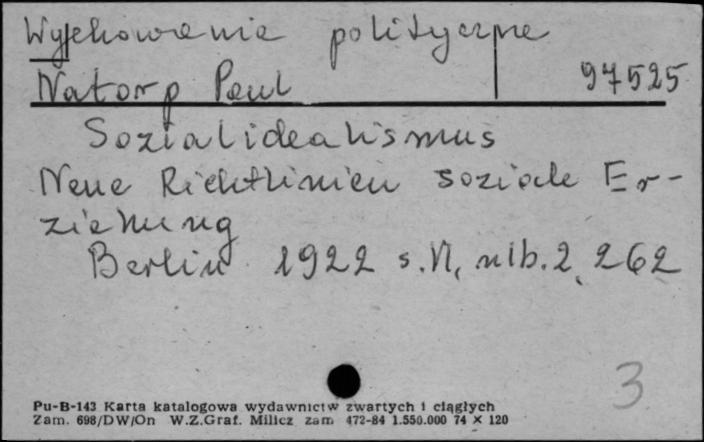 Wychowanie polityczne
Natorp Paul 97525
Sozialidealismus
Neue Richtlinien soziale Er-
ziehung
Berlin 1922 s. VI, nlb. 2, 262
3
Pu-B-143 Karta katalogowa wydawnictw zwartych i ciągłych
Zam. 698/DW/On W.Z.Graf. Milicz zam 472-84 1.550.000 74 × 120